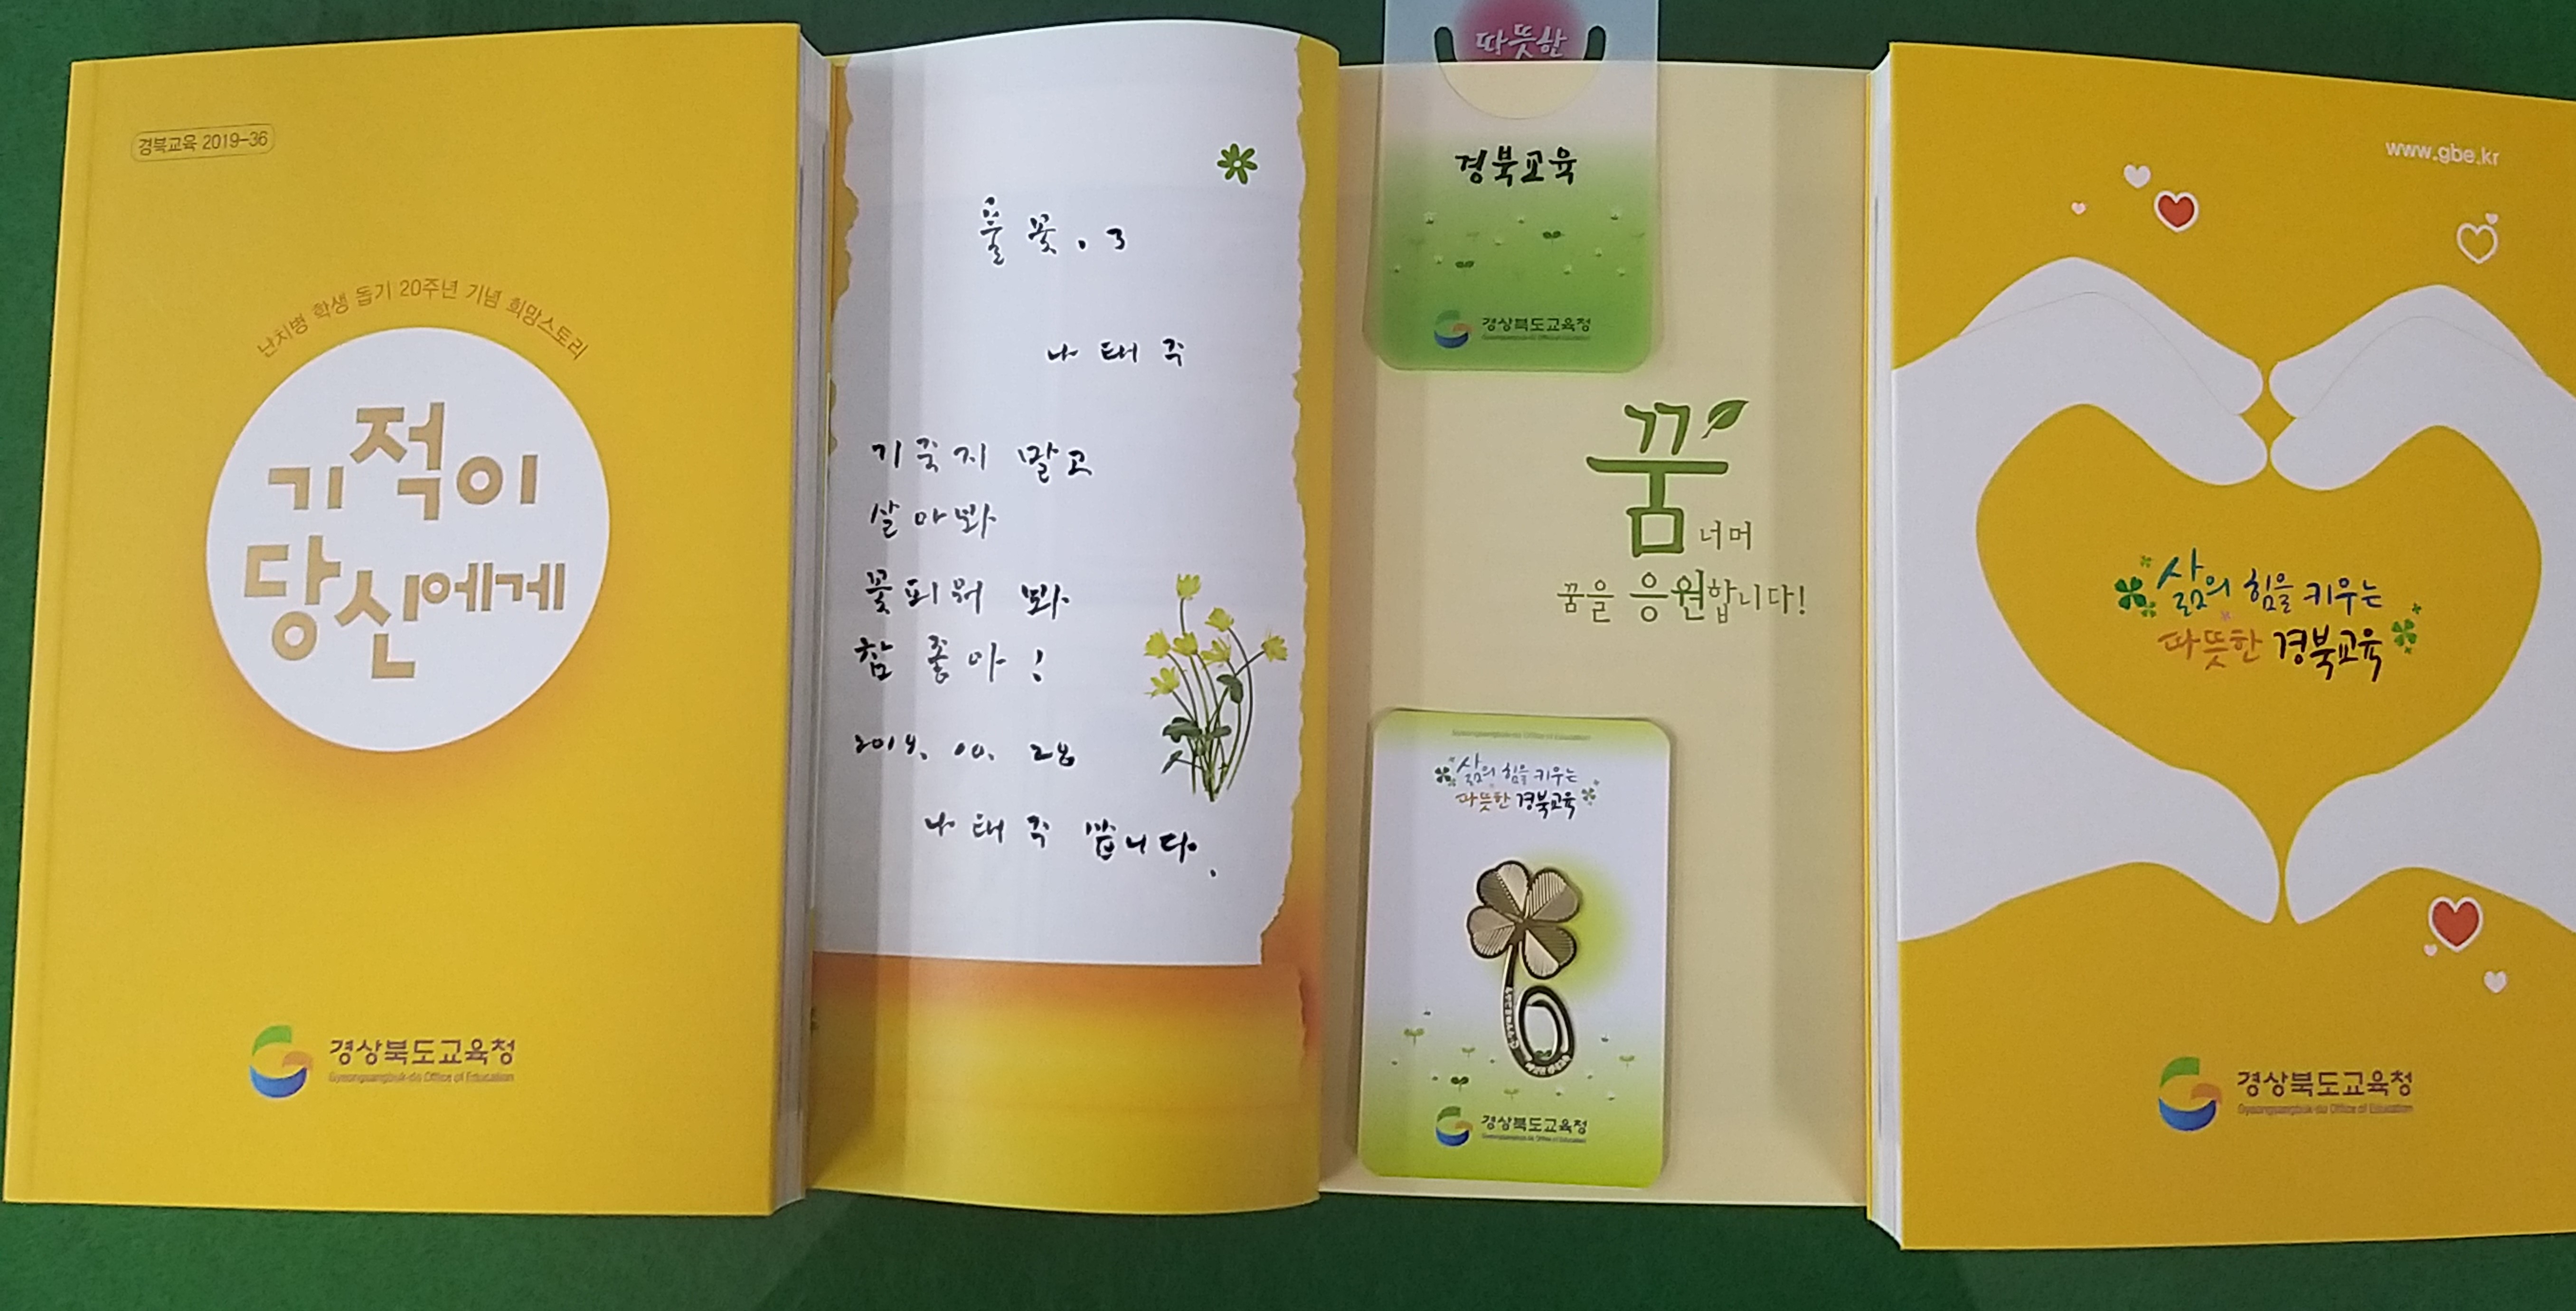 경북교육 2019-36
난치병 학생 돕기 20주년 기념 희망스토리
기적이
당신에게
경상북도교육청
Gyeongsangbuk-do Office of Education
풀꽃.3
나태주
기죽지 말고
살아봐
꽃피워 봐
참 좋아!
2019. 10. 28
나태주 씁니다.
따뜻한
경북교육
경상북도교육청
Gyeongsangbuk-do Office of Education
꿈 너머
꿈을 응원합니다!
Gyeongsangbuk-do Office of Education
삶의 힘을 키우는
따뜻한 경북교육
경상북도교육청
Gyeongsangbuk-do Office of Education
www.gbe.kr
삶의 힘을 키우는
따뜻한 경북교육
경상북도교육청
Gyeongsangbuk-do Office of Education